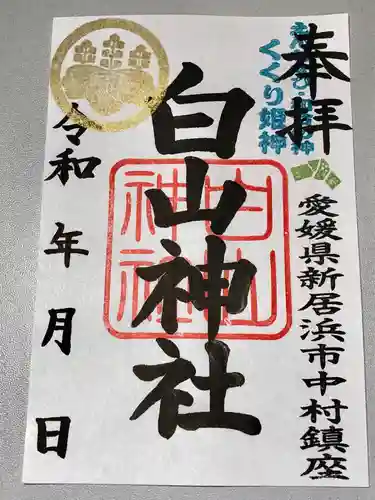 奉拝
くくり姫神
愛媛県新居浜市中村鎮座
白山神社
白山神社
令和 年 月 日